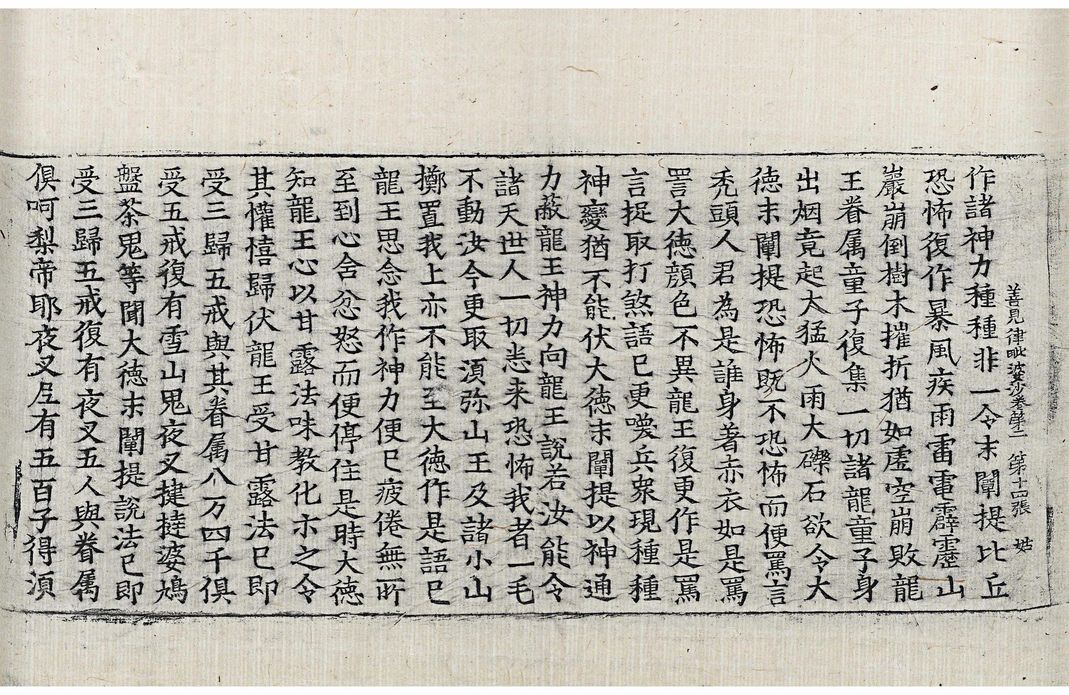 善見律毗婆沙卷第二　第十四張　姑
作諸神力種種非一令末闡提比丘
恐怖復作暴風疾雨雷電霹靂山
巖崩倒樹木摧折猶如虛空崩敗龍
王眷属童子復集一切諸龍童子身
出烟竟起大猛火雨大礫石欲令大
徳末闡提恐怖既不恐怖而便罵言
禿頭人君為是誰身著赤衣如是罵
詈大徳顔色不異龍王復更作是罵
言捉取打煞語已更喚兵衆現種種
神變猶不能伏大徳末闡提以神通
力蔽龍王神力向龍王說若汝能令
諸天世人一切悉来恐怖我者一毛
不動汝今更取須弥山王及諸小山
擲置我上亦不能至大徳作是語已
龍王思念我作神力便已疲倦無所
至到心含忿怒而便停住是時大徳
知龍王心以甘露法味教化示之令
其懽憘歸伏龍王受甘露法已即
受三歸五戒與其眷属八万四千俱
受五戒復有雪山鬼夜叉揵撻婆鳩
盤荼鬼等聞大徳末闡提說法已即
受三歸五戒復有夜叉五人與眷属
俱呵梨帝耶夜叉尼有五百子得須